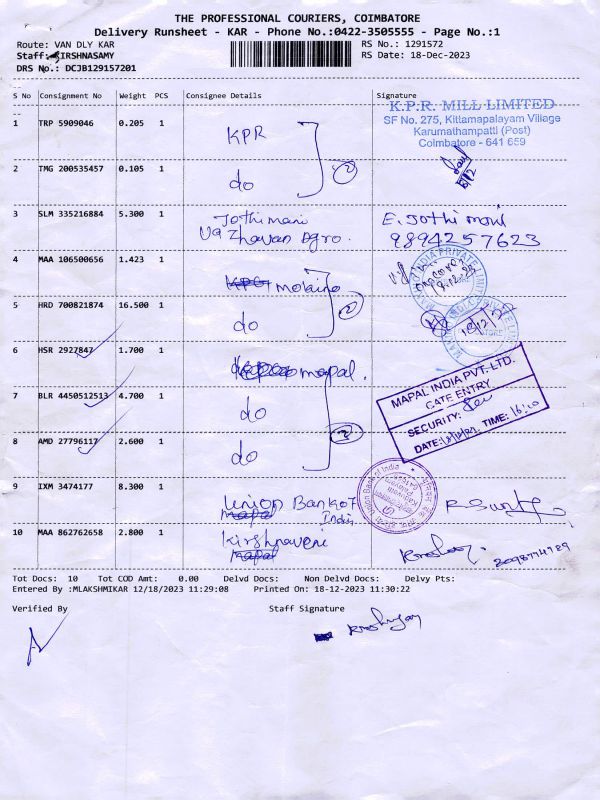 THE PROFESSIONAL COURIERS, COIMBATORE
Delivery Runsheet - KAR - Phone No.:0422-3505555 - Page No.:1
Route: VAN DLY KAR
RS No.: 1291572
Staff: KIRSHNASAMY
RS Date: 18-Dec-2023
DRS No.: DCJB129157201
S No Consignment No Weight PCS Consignee Details Signature
K.P.R. MILL LIMITED
SF No. 275, Kittampalayam Village
Karumathampatti (Post)
Coimbatore - 641 659
1 TRP 5909046 0.205 1 KPR
2 TMG 200535457 0.105 1 do 2
3 SLM 335216884 5.300 1 Jothimani E. Jothi mani
Agro. 9894257623
4 MAA 106500656 1.423 1
5 HRD 700821874 16.500 1 do 2
6 HSR 2927847 1.700 1 mapal.
MAPAL INDIA PVT. LTD.
GATE ENTRY
SECURITY:
DATE: TIME: 16:10
7 BLR 4450512513 4.700 1 do
8 AMD 27796117 2.600 1 do
9 IXM 3474177 8.300 1 Union Bank of
India
Union Bank of India
10 MAA 862762658 2.800 1 Kirshnaveni
Tot Docs: 10 Tot COD Amt: 0.00 Delvd Docs: Non Delvd Docs: Delvy Pts:
Entered By :MLAKSHMIKAR 12/18/2023 11:29:08 Printed On: 18-12-2023 11:30:22
Verified By Staff Signature